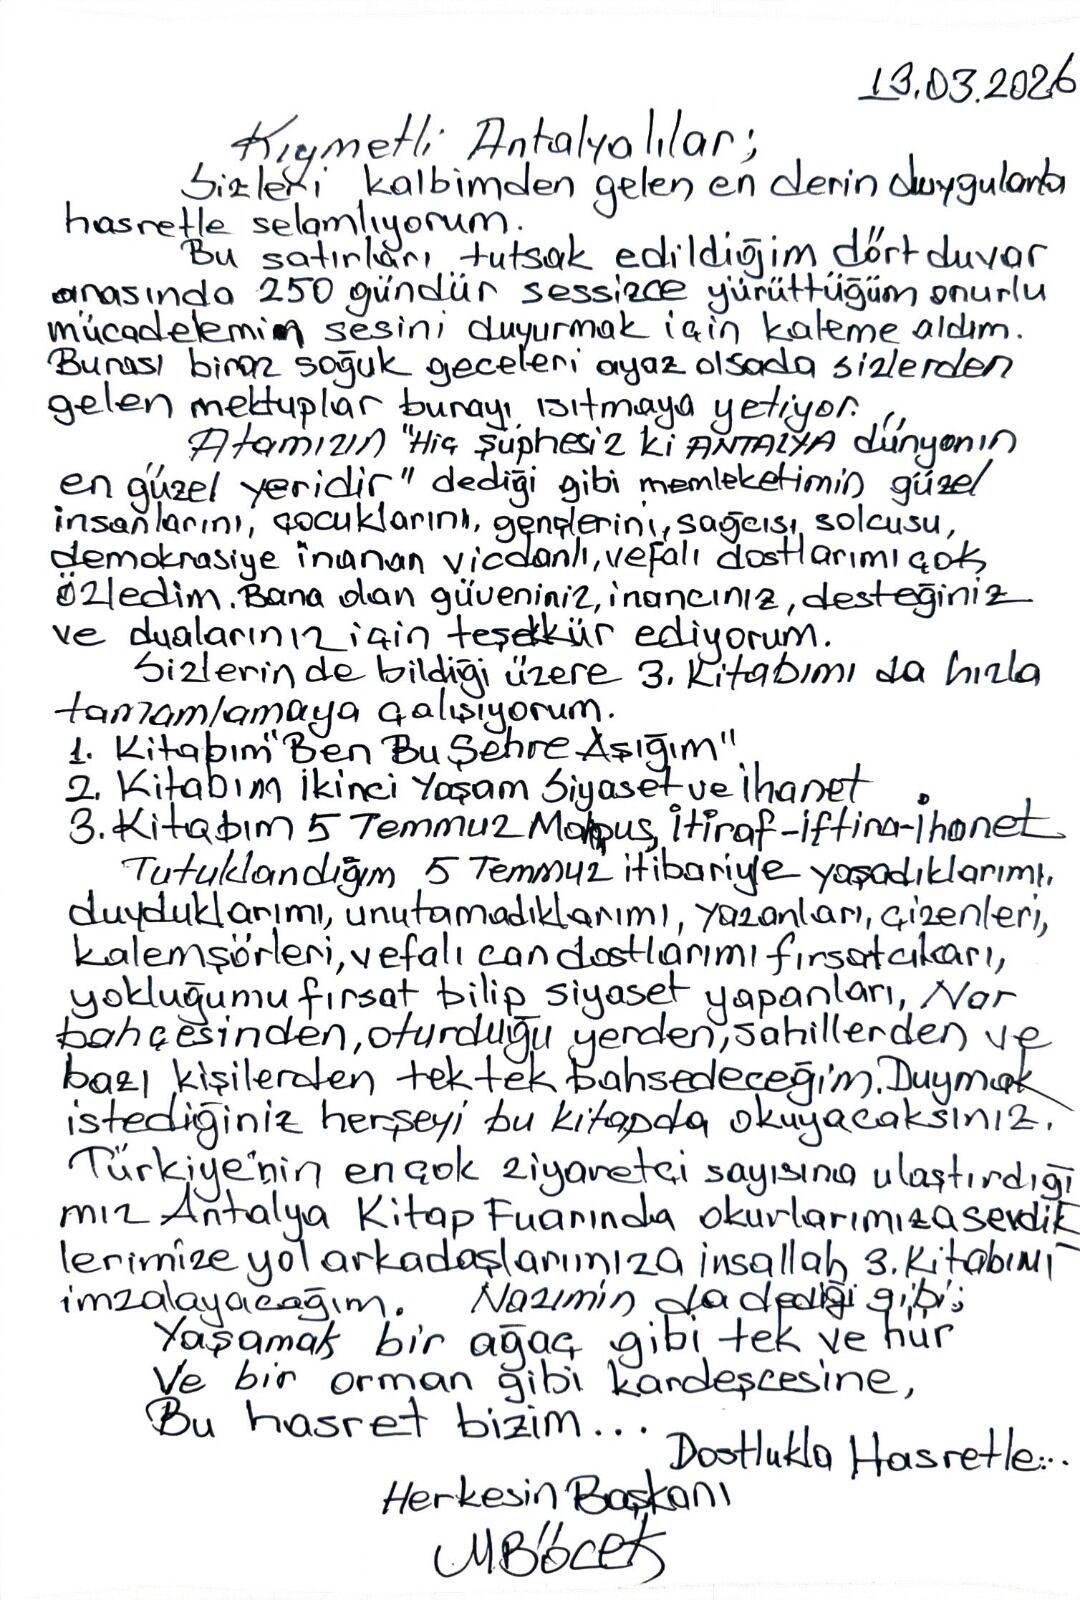 13.03.2026
Kıymetli Antalyalılar;
Sizleri kalbimden gelen en derin duygularla
hasretle selamlıyorum.
Bu satırları tutsak edildiğim dört duvar
arasında 250 gündür sessizce yürüttüğüm onurlu
mücadelemin sesini duyurmak için kaleme aldım.
Burası biraz soğuk geceleri ayaz olsada sizlerden
gelen mektuplar burayı ısıtmaya yetiyor.
Atamızın "Hiç şüphesiz ki ANTALYA dünyanın
en güzel yeridir" dediği gibi memleketimin güzel
insanlarını, çocuklarını, gençlerini, sağcısı, solcusu,
demokrasiye inanan vicdanlı, vefalı dostlarımı çok
özledim. Bana olan güveniniz, inancınız, desteğiniz
ve dualarınız için teşekkür ediyorum.
Sizlerin de bildiği üzere 3. Kitabımı da hızla
tamamlamaya çalışıyorum.
1. Kitabım "Ben Bu Şehre Aşığım"
2. Kitabım İkinci Yaşam Siyaset ve İhanet
3. Kitabım 5 Temmuz Mahpus, İtiraf-iftira-ihanet
Tutuklandığım 5 Temmuz itibariyle yaşadıklarımı,
duyduklarımı, unutamadıklarımı, yazanları, çizenleri,
kalemşörleri, vefalı can dostlarımı fırsatcıkarı,
yokluğumu fırsat bilip siyaset yapanları, Nar
bahçesinden, oturduğu yerden, sahillerden ve
bazı kişilerden tek tek bahsedeceğim. Duymak
istediğiniz herşeyi bu kitapda okuyacaksınız.
Türkiye'nin en çok ziyaretçi sayısına ulaştırdığı
mız Antalya Kitap Fuarında okurlarımıza sevdik
lerimize yol arkadaşlarımıza insallah 3. Kitabımı
imzalayacağım. Nazımın da dediği gibi;
Yaşamak bir ağaç gibi tek ve hür
Ve bir orman gibi kardeşcesine,
Bu hasret bizim...
Dostlukla Hasretle...
Herkesin Başkanı
MBöcek